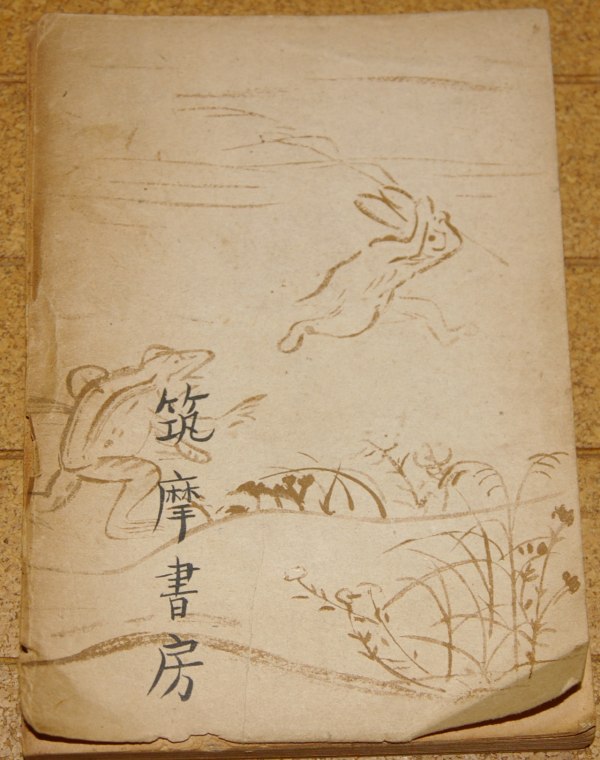 筑摩書房